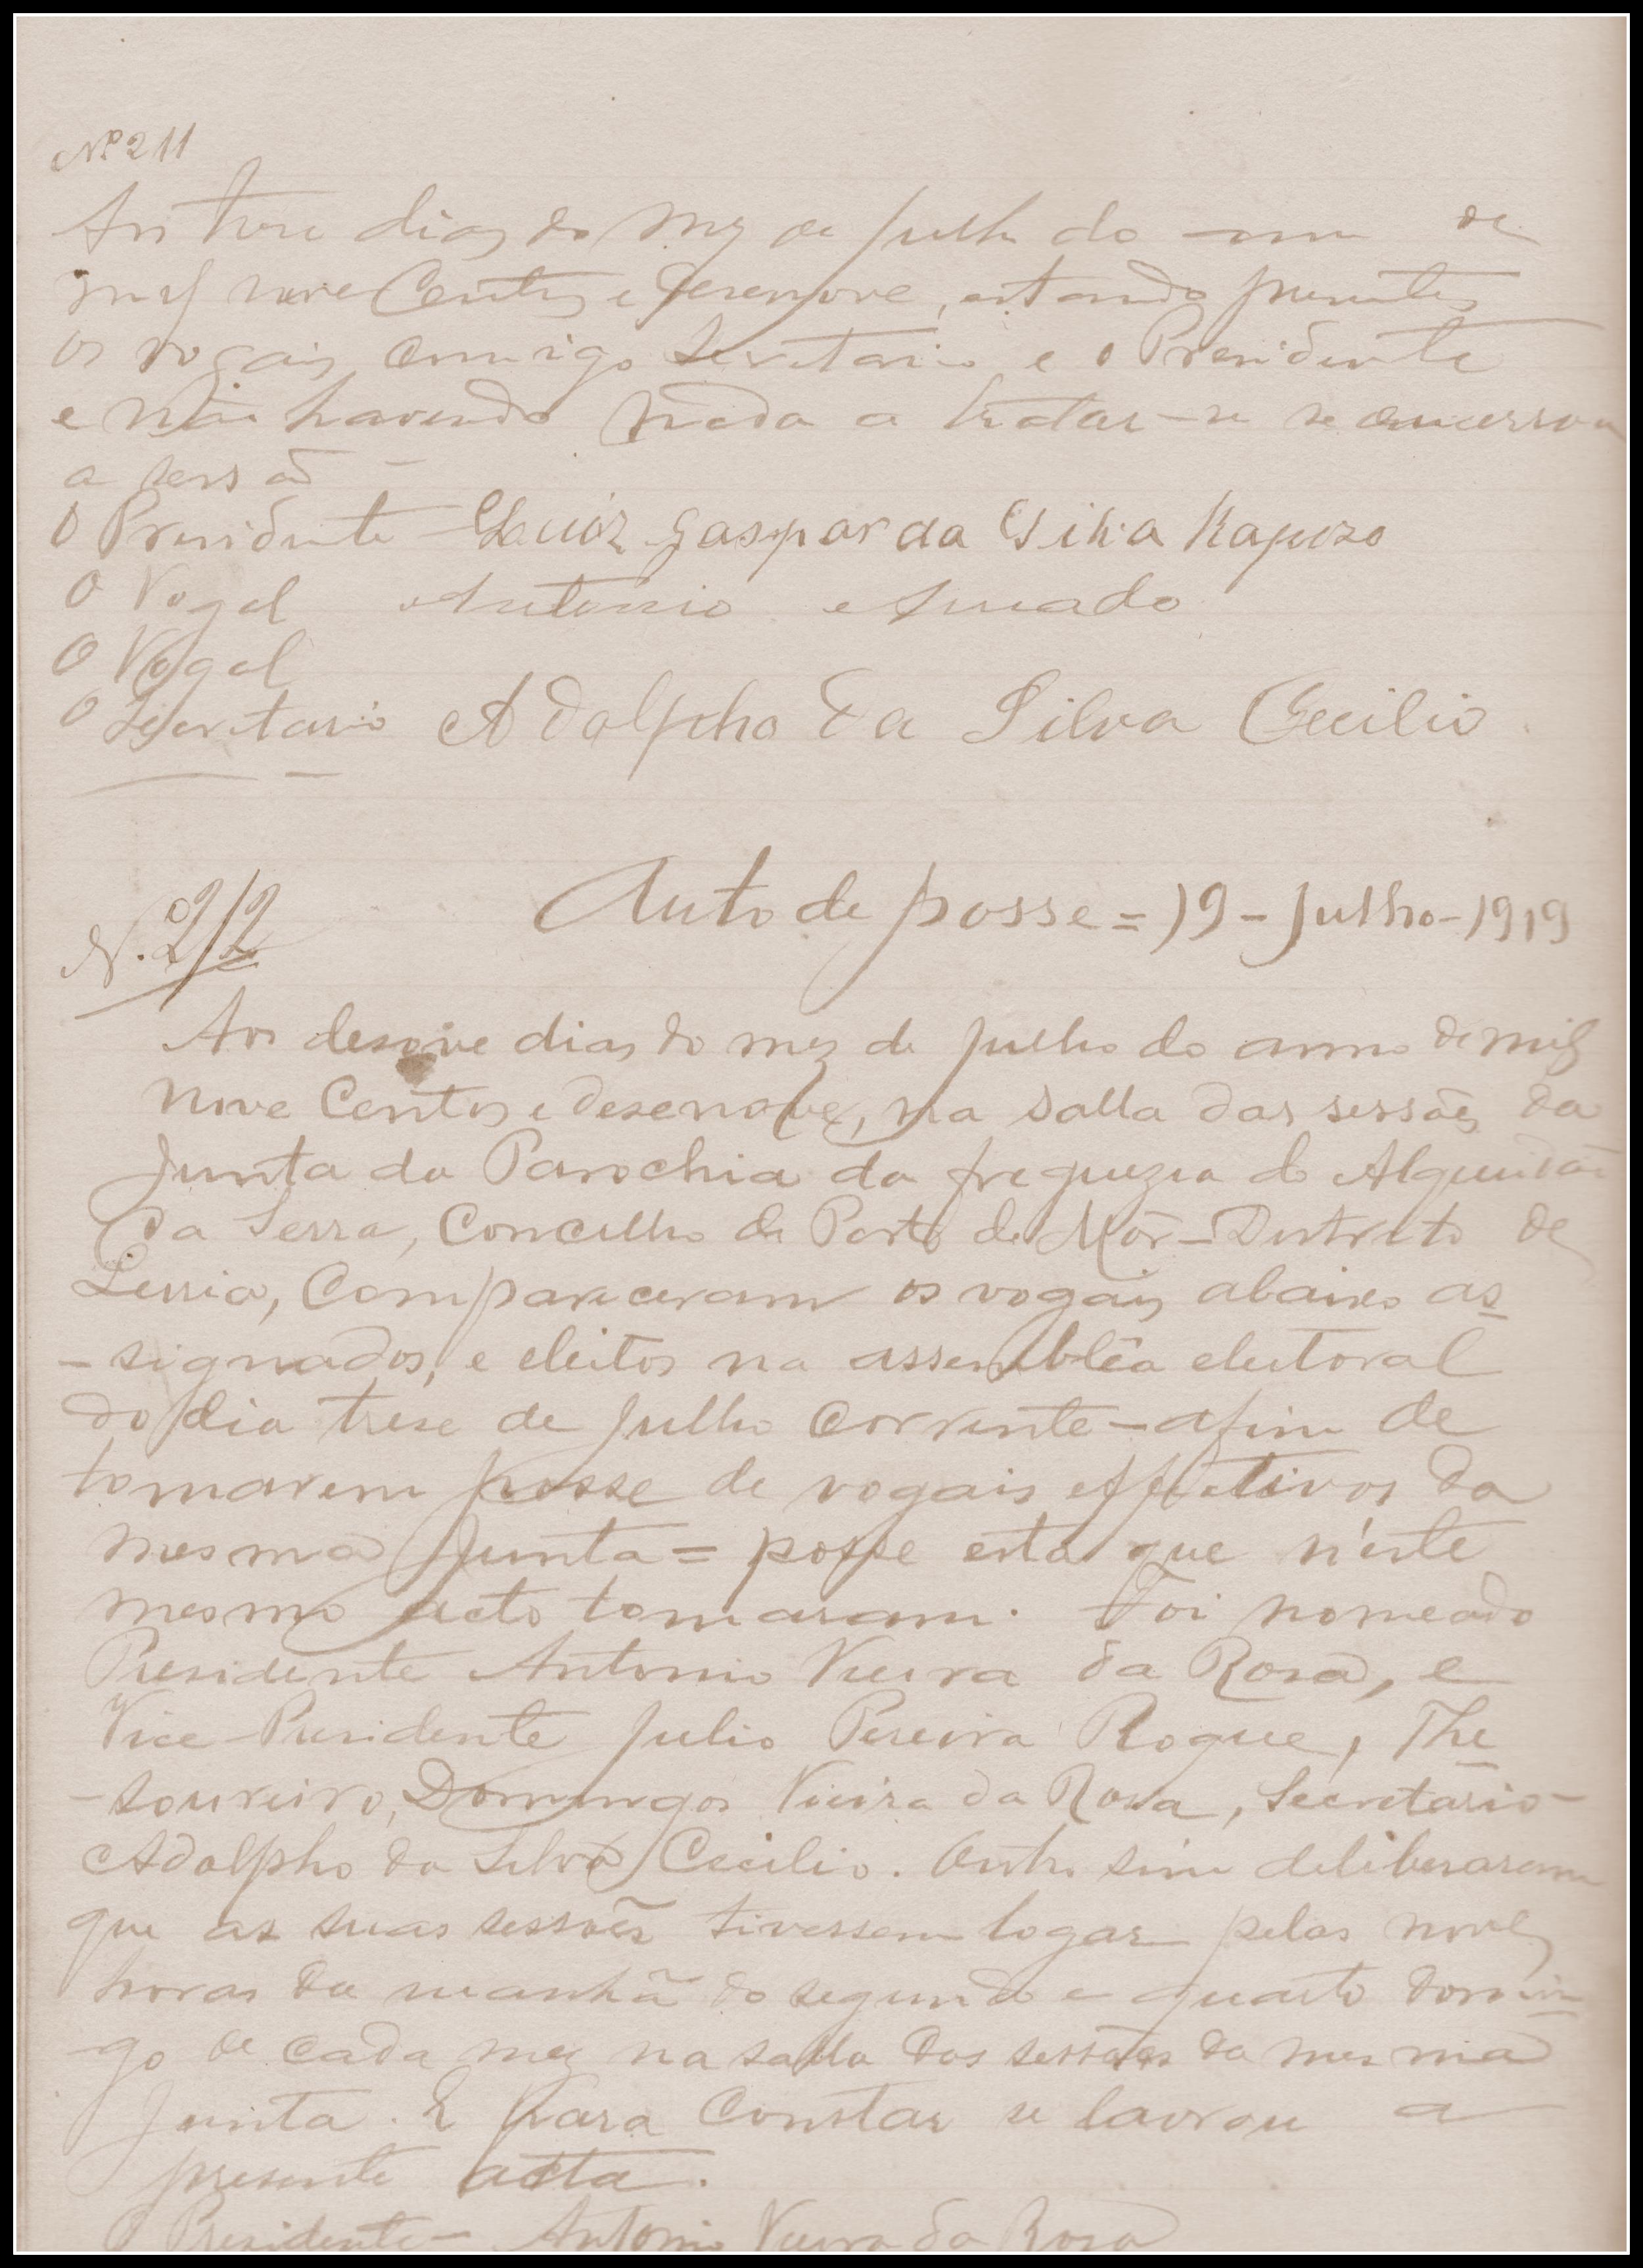 Nº 211
Aos treze dias do mez de julho do anno de
mil nove Centos e desenove, estando presentes
os vogais comigo Secretario e o Presidente
e não havendo nada a tratar-se se encerrou
a sessão -
O Presidente Luiz Gaspar da Silva Rapozo
O Vogal Antonio Amado
O Vogal
O Secretario Adolpho da Silva Cecilio
N. 212
Auto de posse = 19 - Julho - 1919
Aos desove dias do mez de julho do anno de mil
nove Centos e desenove, na salla das sessões da
Junta da Parochia da freguezia de Alqueidão
da Serra, Concelho de Porto de Mór - Districto de
Leiria, Compareceram os vogais abaixo as
- signados, e eleitos na assemblêa eleitoral
do dia treze de julho corrente - afim de
tomarem posse de vogais effetivos da
mesma Junta = posse esta que n'este
mesmo acto tomaram. Foi nomeado
Presidente Antonio Vieira da Rosa, e
Vice-Presidente Julio Pereira Roque, The
- soureiro, Domingos Vieira da Rosa, Secretário -
Adolpho da Silva Cecilio. Outro sim deliberaram
que as suas sessões tivessem logar pelas nove
horas da manhã do segundo e quarto domin
- go de cada mez na salla das sessões da mesma
Junta. E para Constar se lavrou a
presente acta.
O Presidente - Antonio Vieira da Rosa